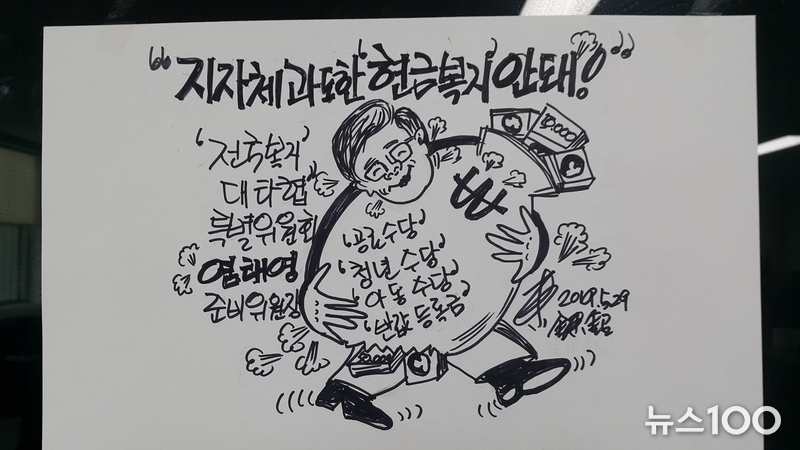 "지자체 과도한 '현금복지' 안돼!"
10,000
'전국복지
대타협'
특별위원회
염태영
준비위원장
₩
'공로수당'
'청년수당'
'아동수당'
'반값등록금'
2019.5.29
10,000
뉴스100